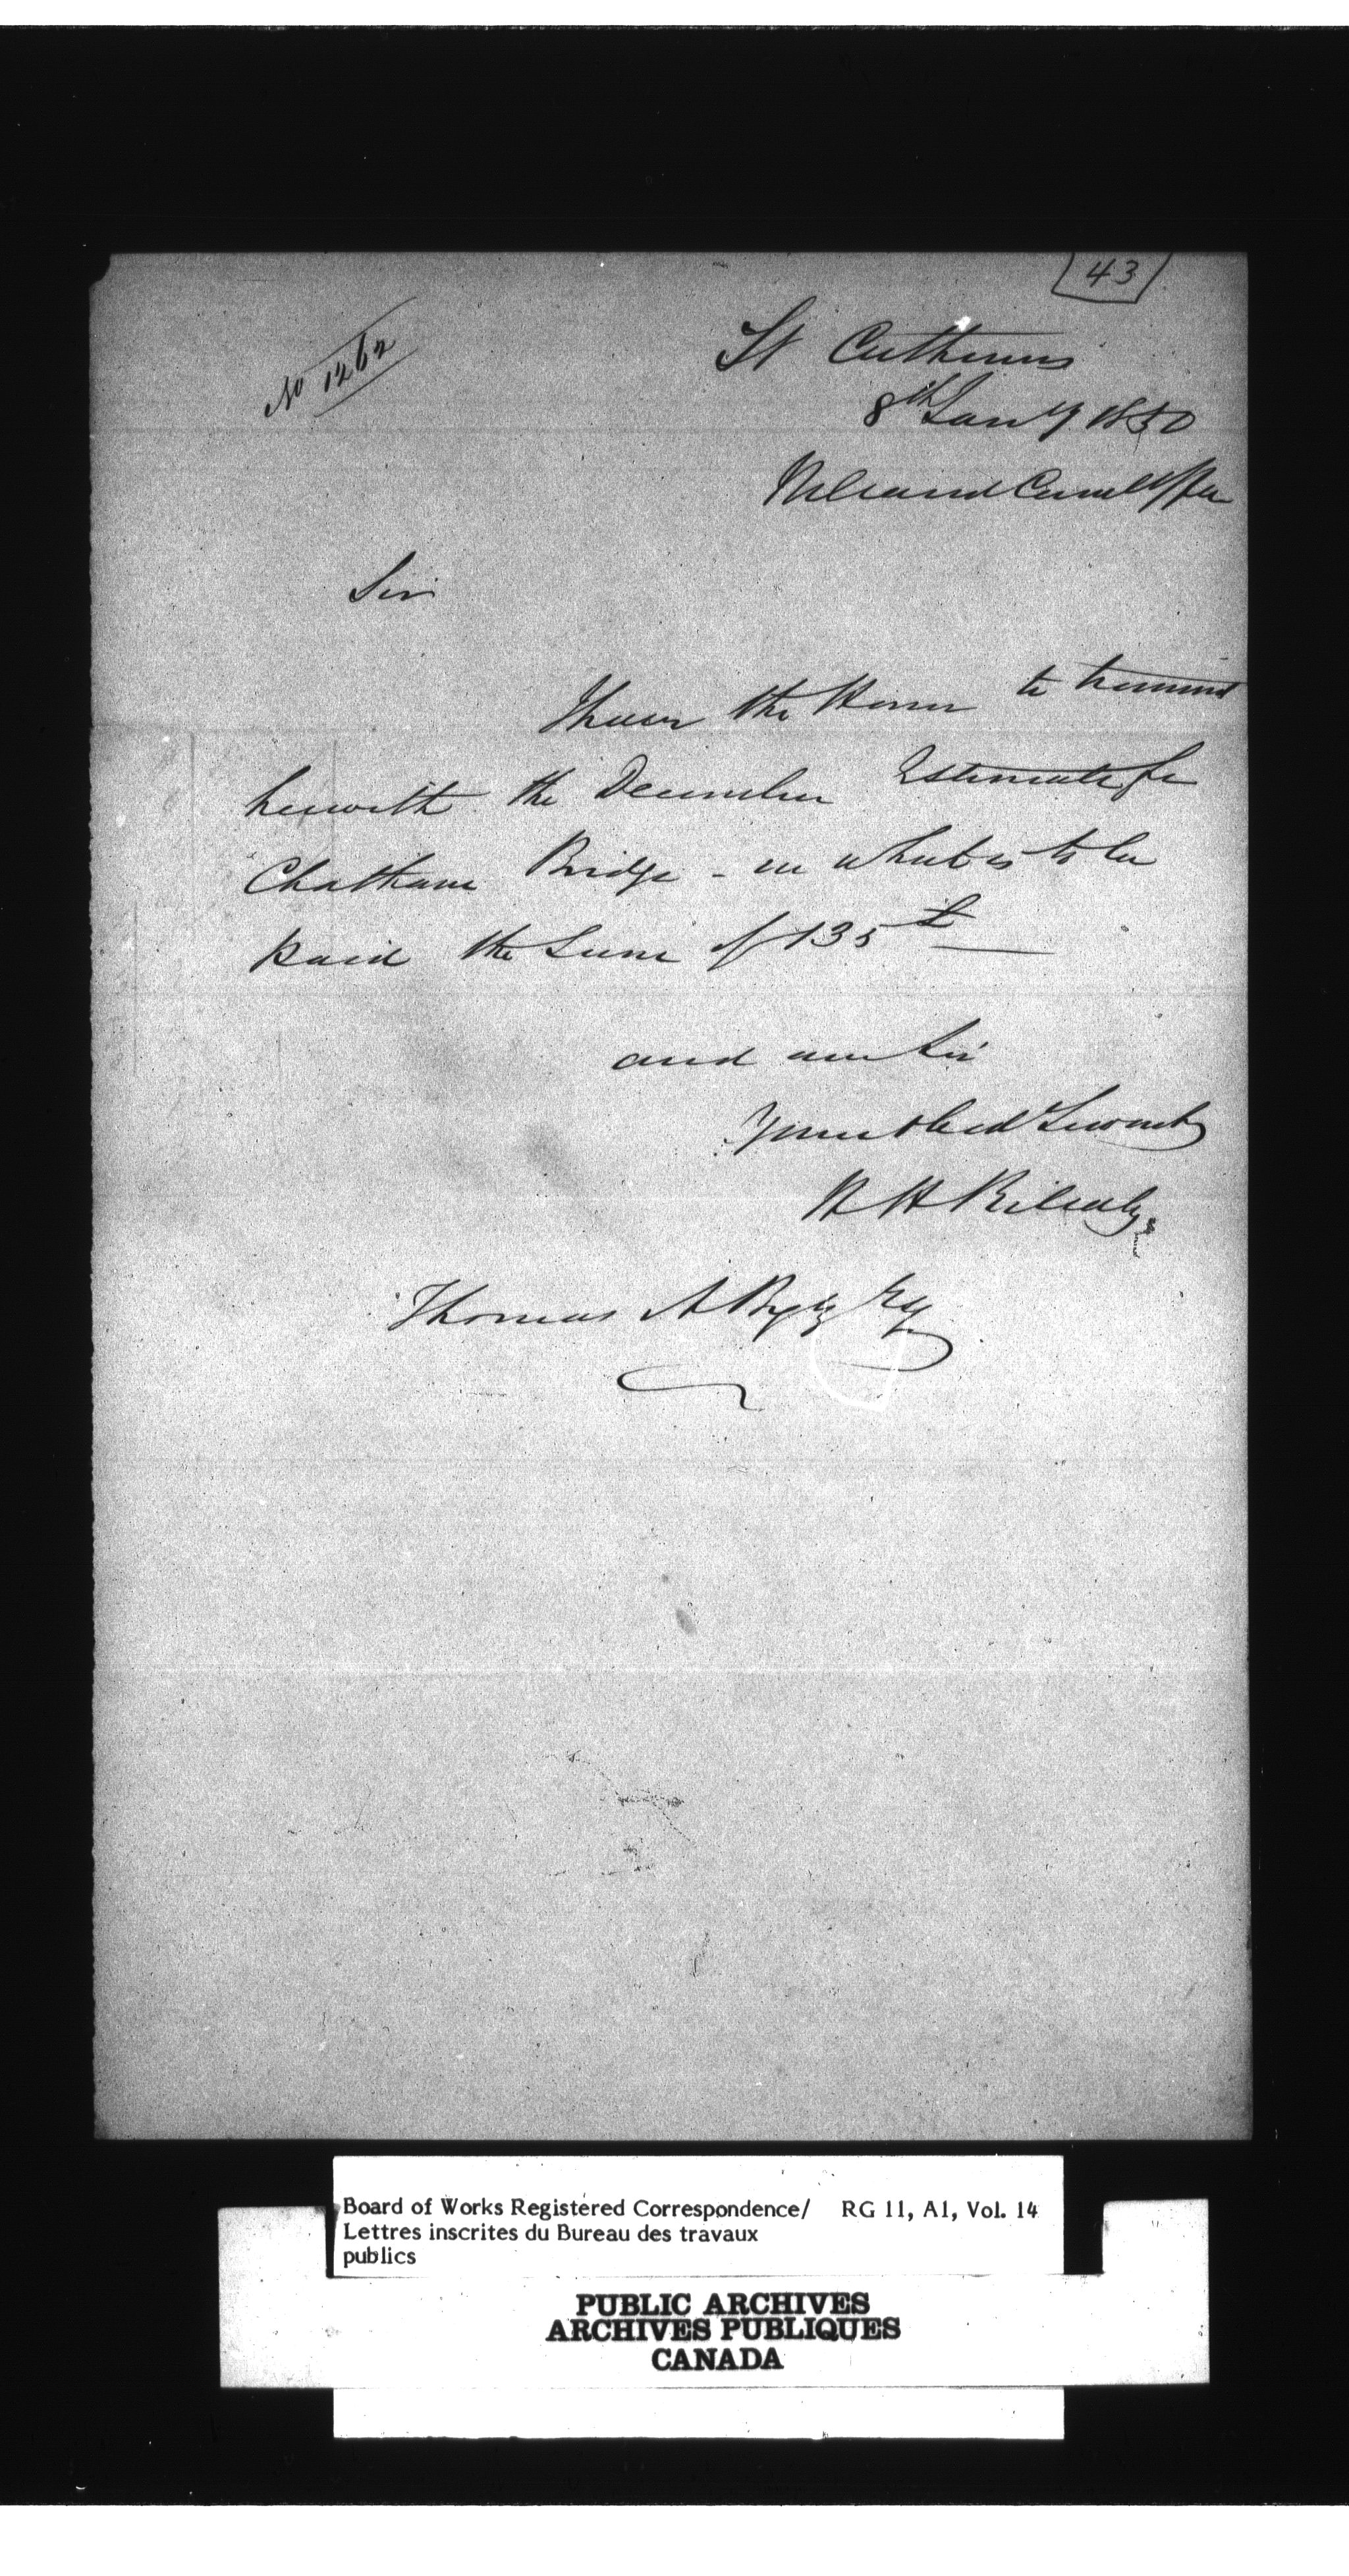 43
No 1262
St Catherines
8th Jany 1850
Welland Canal Office
Sir
I have the Honor to transmit
herewith the December Estimate for
Chatham Bridge - on which is to be
paid the Sum of 135 £
and am Sir
Your Obed Servant
H H Killaly
Thomas A Begly Esq
Board of Works Registered Correspondence/ RG 11, A1, Vol. 14
Lettres inscrites du Bureau des travaux
publics
PUBLIC ARCHIVES
ARCHIVES PUBLIQUES
CANADA